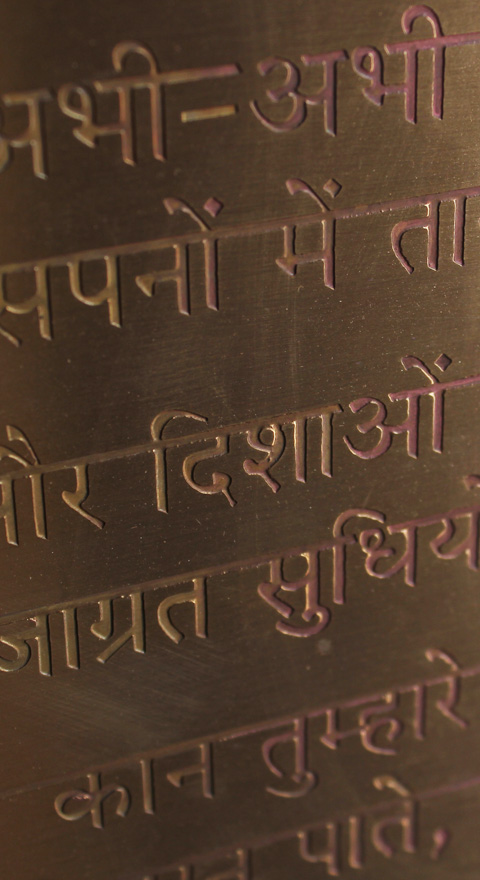 अभी-अभी
सपनों में ता
और दिशाओं
जाग्रत सुधियों
कान तुम्हारे
पाते,